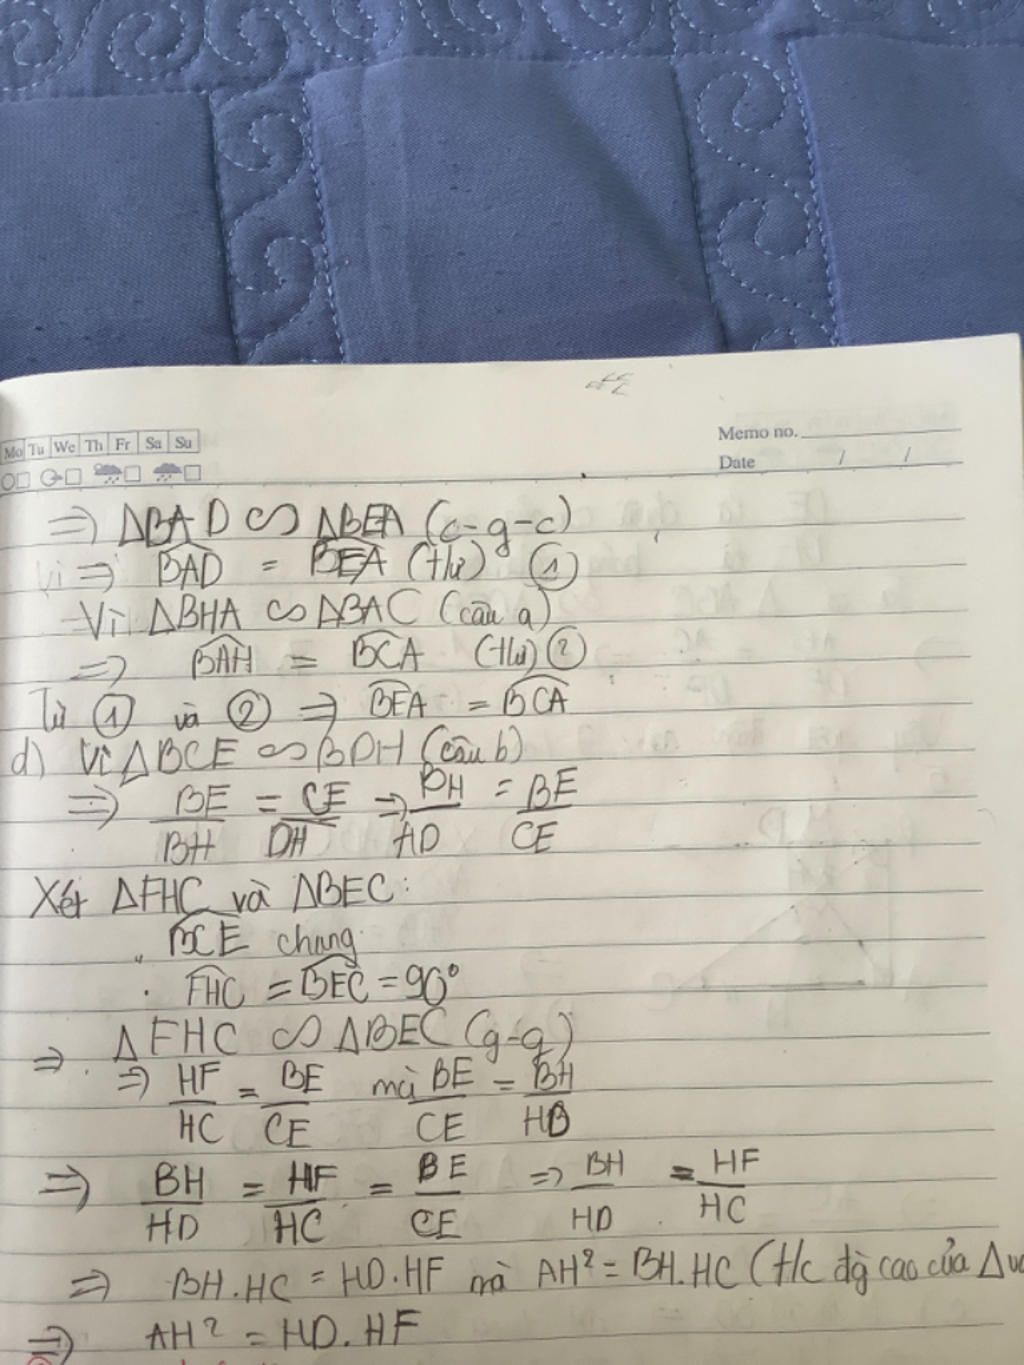 Mo Tu We Th Fr Sa Su
Memo no.
Date / /
=> ΔBAD ∽ ΔBEA (c-g-c)
Vì => BAD = BEA (tứ) ①
-Vì ΔBHA ∽ ΔBAC (câu a)
=> BAH = BCA (tứ) ②
Từ ① và ② => BEA = BCA
d) Vì ΔBCE ∽ BDH (câu b)
=> BE/BH = CE/DH => BH/HD = BE/CE
Xét ΔFHC và ΔBEC:
BCE chung
. FHC = BEC = 90°
=> ΔFHC ∽ ΔBEC (g-g)
=> HF/HC = BE/CE mà BE/CE = BH/HD
=> BH/HD = HF/HC = BE/CE => BH/HD = HF/HC
=> BH.HC = HD.HF mà AH² = BH.HC (Htc đg cao của Δ
=> AH² = HD.HF